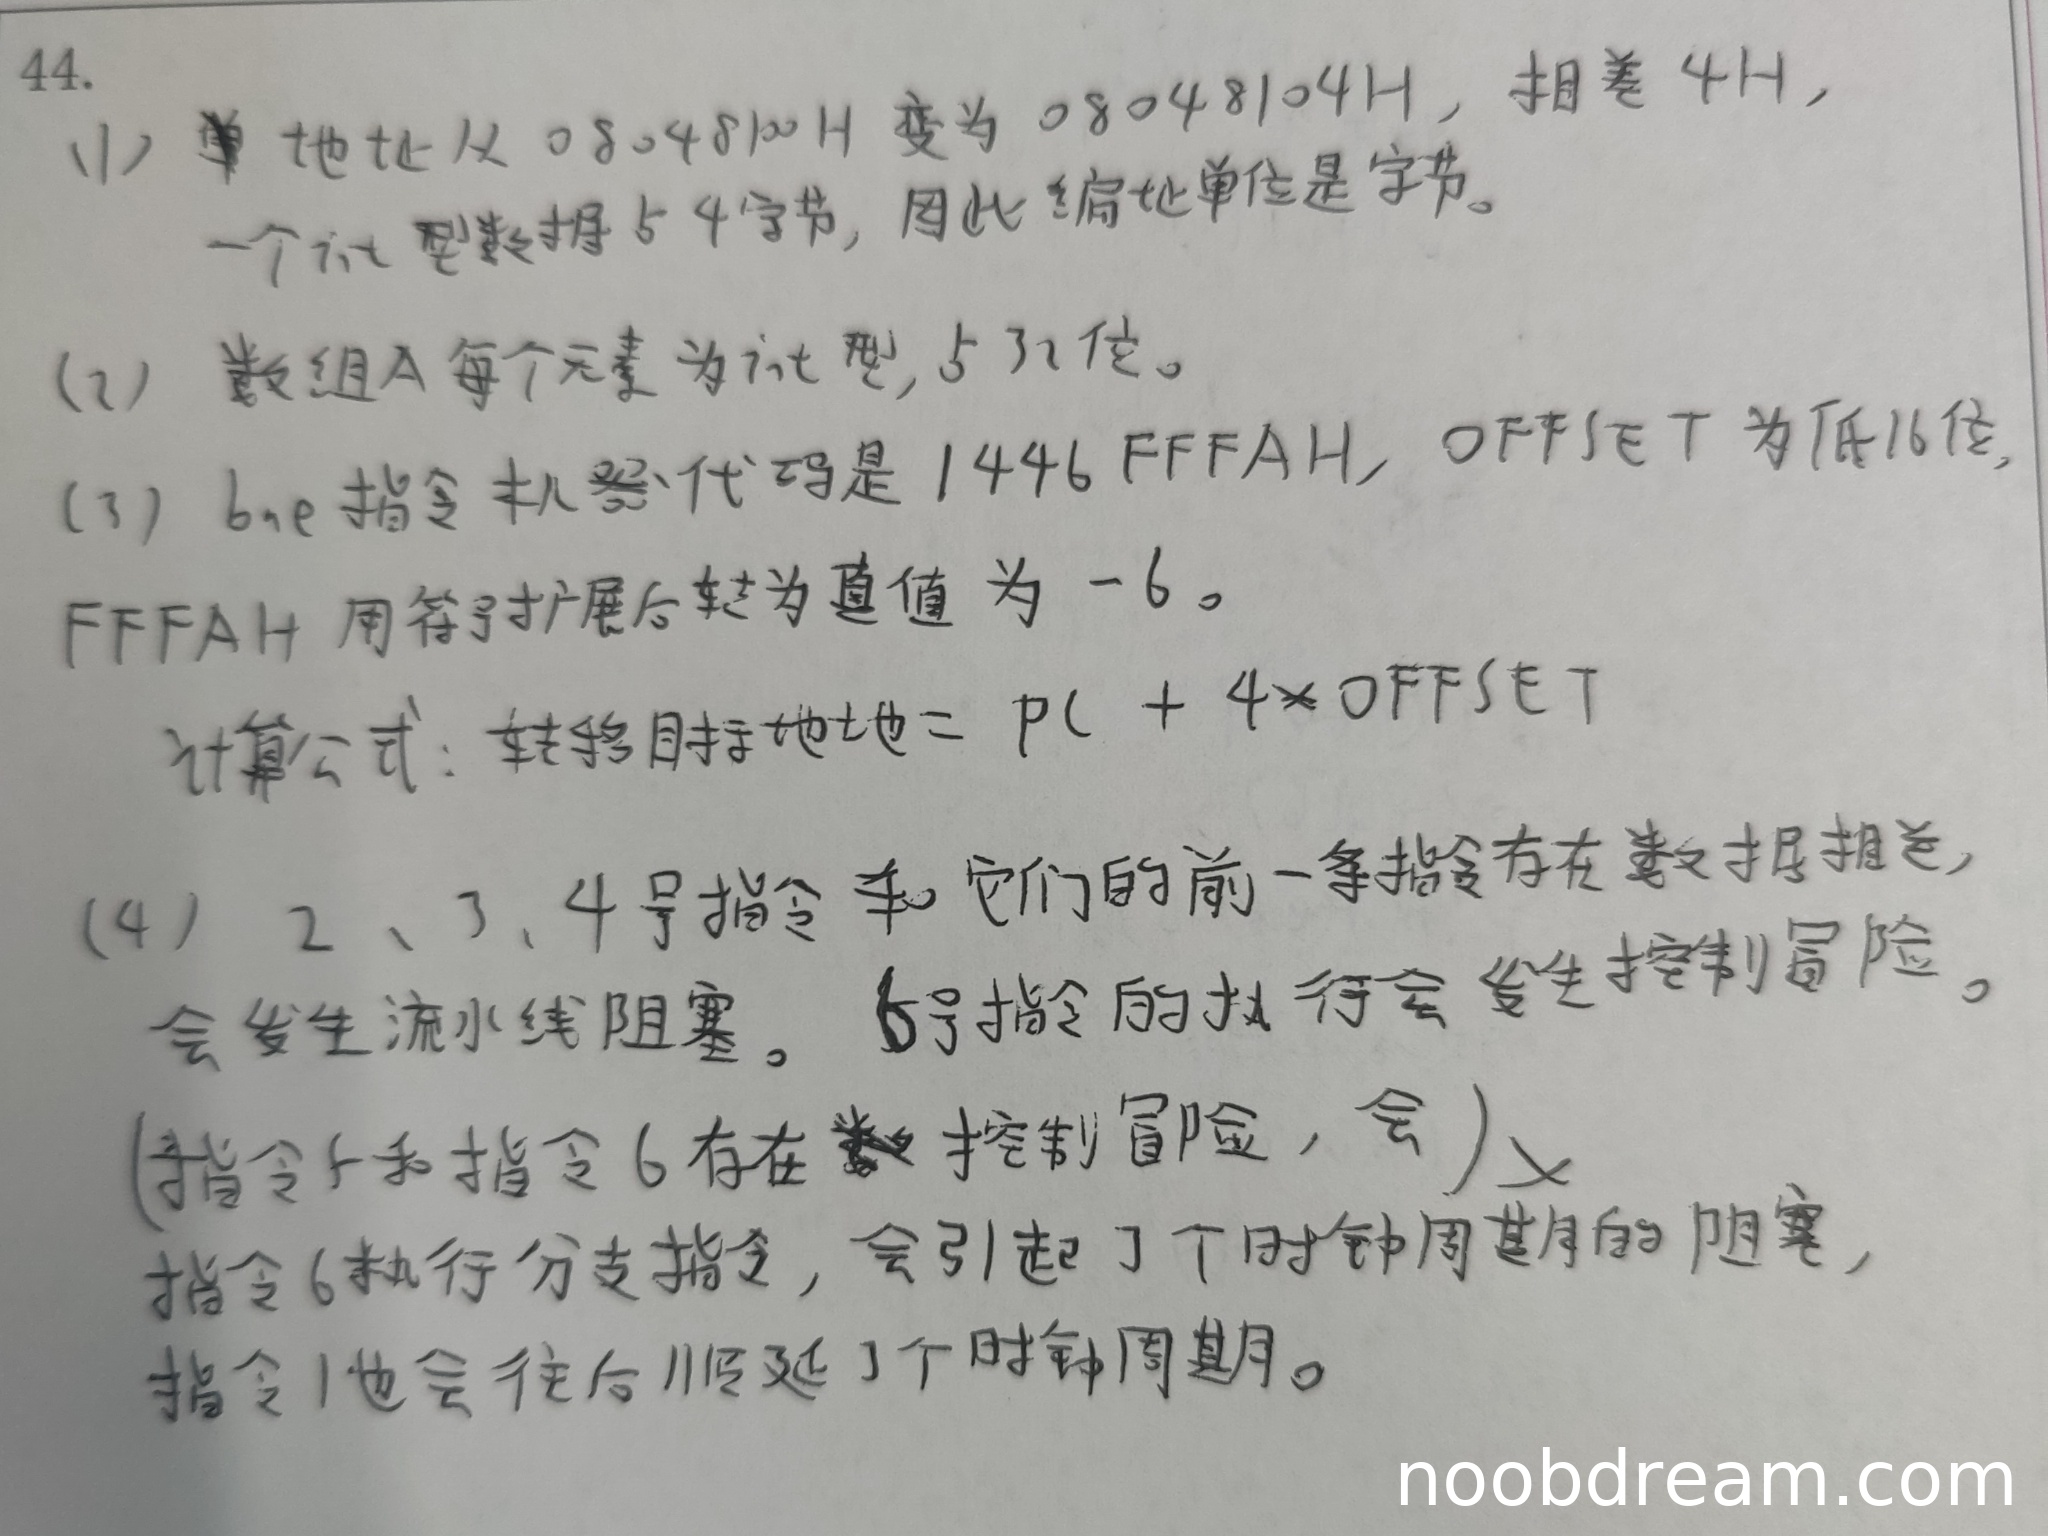 44.
(1) 地址从 08048100H 变为 08048104H, 相差 4H,
一个int 型数据占 4字节, 因此编址单位是字节。
(2) 数组A 每个元素为int 型, 占 32位。
(3) bne指令机器代码是 1446FFFAH, OFFSET 为低16位,
FFFAH 用符号扩展后转为真值为 -6。
计算公式: 转移目标地址 = PC + 4×OFFSET
(4) 2、3、4号指令和它们的前一条指令存在数据相关,
会发生流水线阻塞。 6号指令的执行会发生控制冒险。
(指令5和指令6存在控制冒险, 会) ×
指令6执行分支指令, 会引起3个时钟周期的阻塞,
指令1也会往后顺延3个时钟周期。
noobdream.com